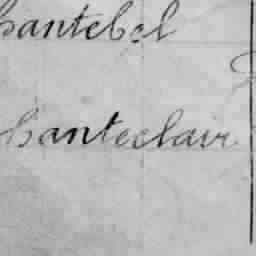 Chantebel
Chanteclair